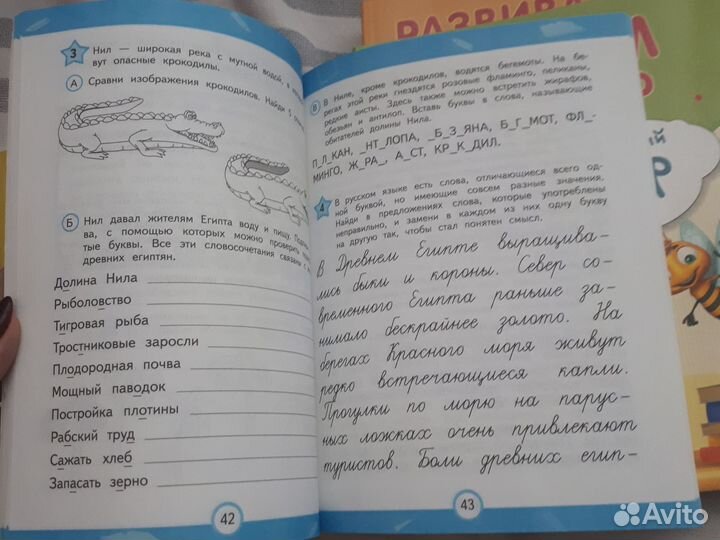 3 Нил — широкая река с мутной водой, в
вут опасные крокодилы.
А Сравни изображения крокодилов. Найди 5
Б Нил давал жителям Египта воду и пищу.
ва, с помощью которых можно проверить
тые буквы. Все эти словосочетания связаны с
древних египтян.
Долина Нила
Рыболовство
Тигровая рыба
Тростниковые заросли
Плодородная почва
Мощный паводок
Постройка плотины
Рабский труд
Сажать хлеб
Запасать зерно
42
В В Ниле, кроме крокодилов, водятся бегемоты. На бе-
регах этой реки гнездятся розовые фламинго, пеликаны,
редкие аисты. Здесь также можно встретить жирафов,
обезьян и антилоп. Вставь буквы в слова, называющие
обитателей долины Нила.
П_Л_КАН, _НТ_ЛОПА, _Б_З_ЯНА, Б_Г_МОТ, ФЛ_-
МИНГО, Ж_РА_, А_СТ, КР_К_ДИЛ.
4 В русском языке есть слова, отличающиеся всего од-
ной буквой, но имеющие совсем разные значения.
Найди в предложениях слова, которые употреблены
неправильно, и замени в каждом из них одну букву
на другую так, чтобы стал понятен смысл.
В Древнем Египте выращива-
лись быки и короны. Север со-
временного Египта раньше за-
нимало бескрайнее золото. На
берегах Красного моря живут
редко встречающиеся капли.
Прогулки по морю на парус-
ных ложках очень привлекают
туристов. Боли древних егип-
43
РАЗВИВА
Avito